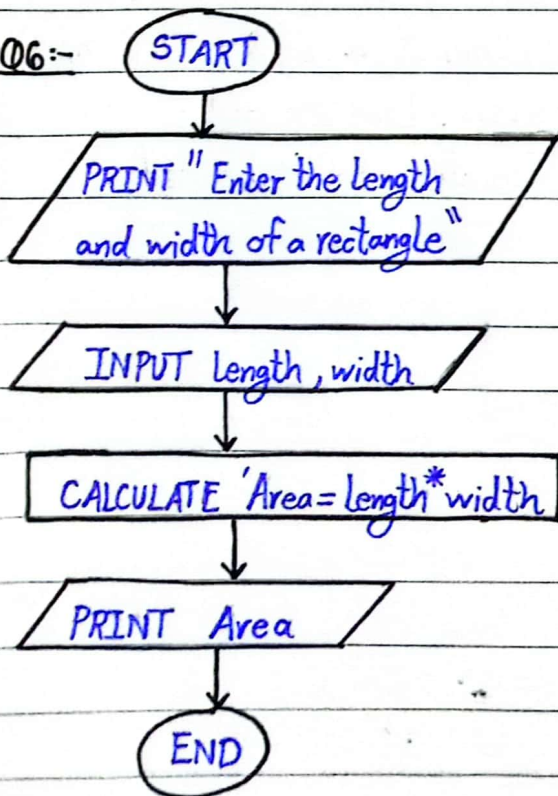 Q6:-
START
PRINT " Enter the length
and width of a rectangle"
INPUT length, width
CALCULATE 'Area = length * width
PRINT Area
END